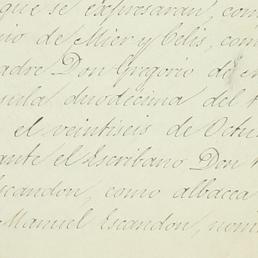 que se expresarán, com
nio de Mier y Celis, com
adre Don Gregorio de M
sula duodécima del t
el veintiseis de Octu
ante el Escribano Don
Escandon, como albacea
Manuel Escandon, nom